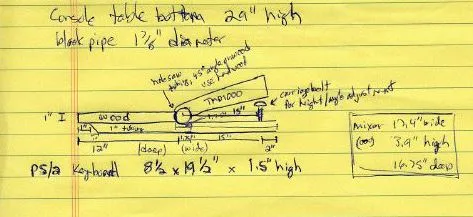 Console table bottom 29" high
black pipe 1 7/8" diameter
holesaw
tubing, 45° angle plywood
use hardwood
TMD1000
carriage bolt
for height/angle adjustment
1" I
wood
15"
1" tubing
12"
15"
2"
(deep) (wide)
mixer 17.4" wide
3.9" high
16.75" deep
PS/2 Keyboard 8 1/2 x 19 1/2" x 1.5" high